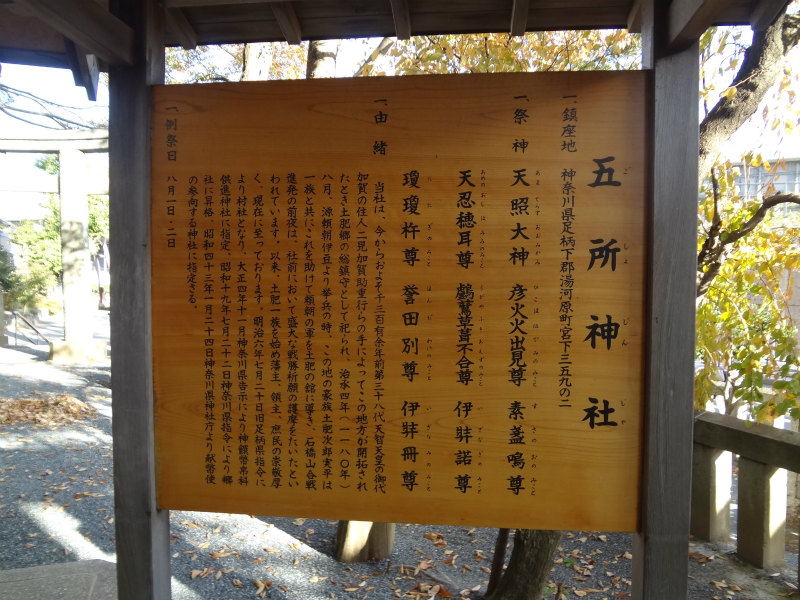 五所神社
ごしょじんじゃ
一、鎮座地 神奈川県足柄下郡湯河原町宮下三五九の二
一、祭神 天照大神 彦火火出見尊 素盞鳴尊
あまてらすおおみかみ ひこほほでみのみこと すさのおのみこと
天忍穂耳尊 鸕鷀草葺不合尊 伊弉諾尊
あめのおしほみみのみこと うがやふきあえずのみこと いざなぎのみこと
瓊瓊杵尊 誉田別尊 伊弉冊尊
ににぎのみこと ほんだわけのみこと いざなみのみこと
一、由緒
当社は、今からおよそ千三百有余年前第三十八代天智天皇の御代
加賀の住人二見加賀助重行らの手によってこの地方が開拓され
たとき土肥郷の総鎮守として祀られ、治承四年(一一八〇年)
八月、源頼朝伊豆より挙兵の時、この地の家族土肥次郎実平は
一族と共にこれを助けて頼朝の軍を土肥の館に導き、石橋山合戦
進発の前夜は、社前において盛大な戦勝祈願の護摩をたいたとい
われています。以来、土肥一族を始め藩主、領主、庶民の崇敬厚
く、現在に至っております。明治六年七月二十日旧足柄県指令に
より村社となり、大正四年十一月神奈川県告示により神饌幣帛料
供進神社に指定、昭和十九年七月二十二日神奈川県指令により郷
社に昇格、昭和四十三年一月二十四日神奈川県神社庁より献幣使
の参向する神社に指定さる。
一、例祭日 八月一日・二日